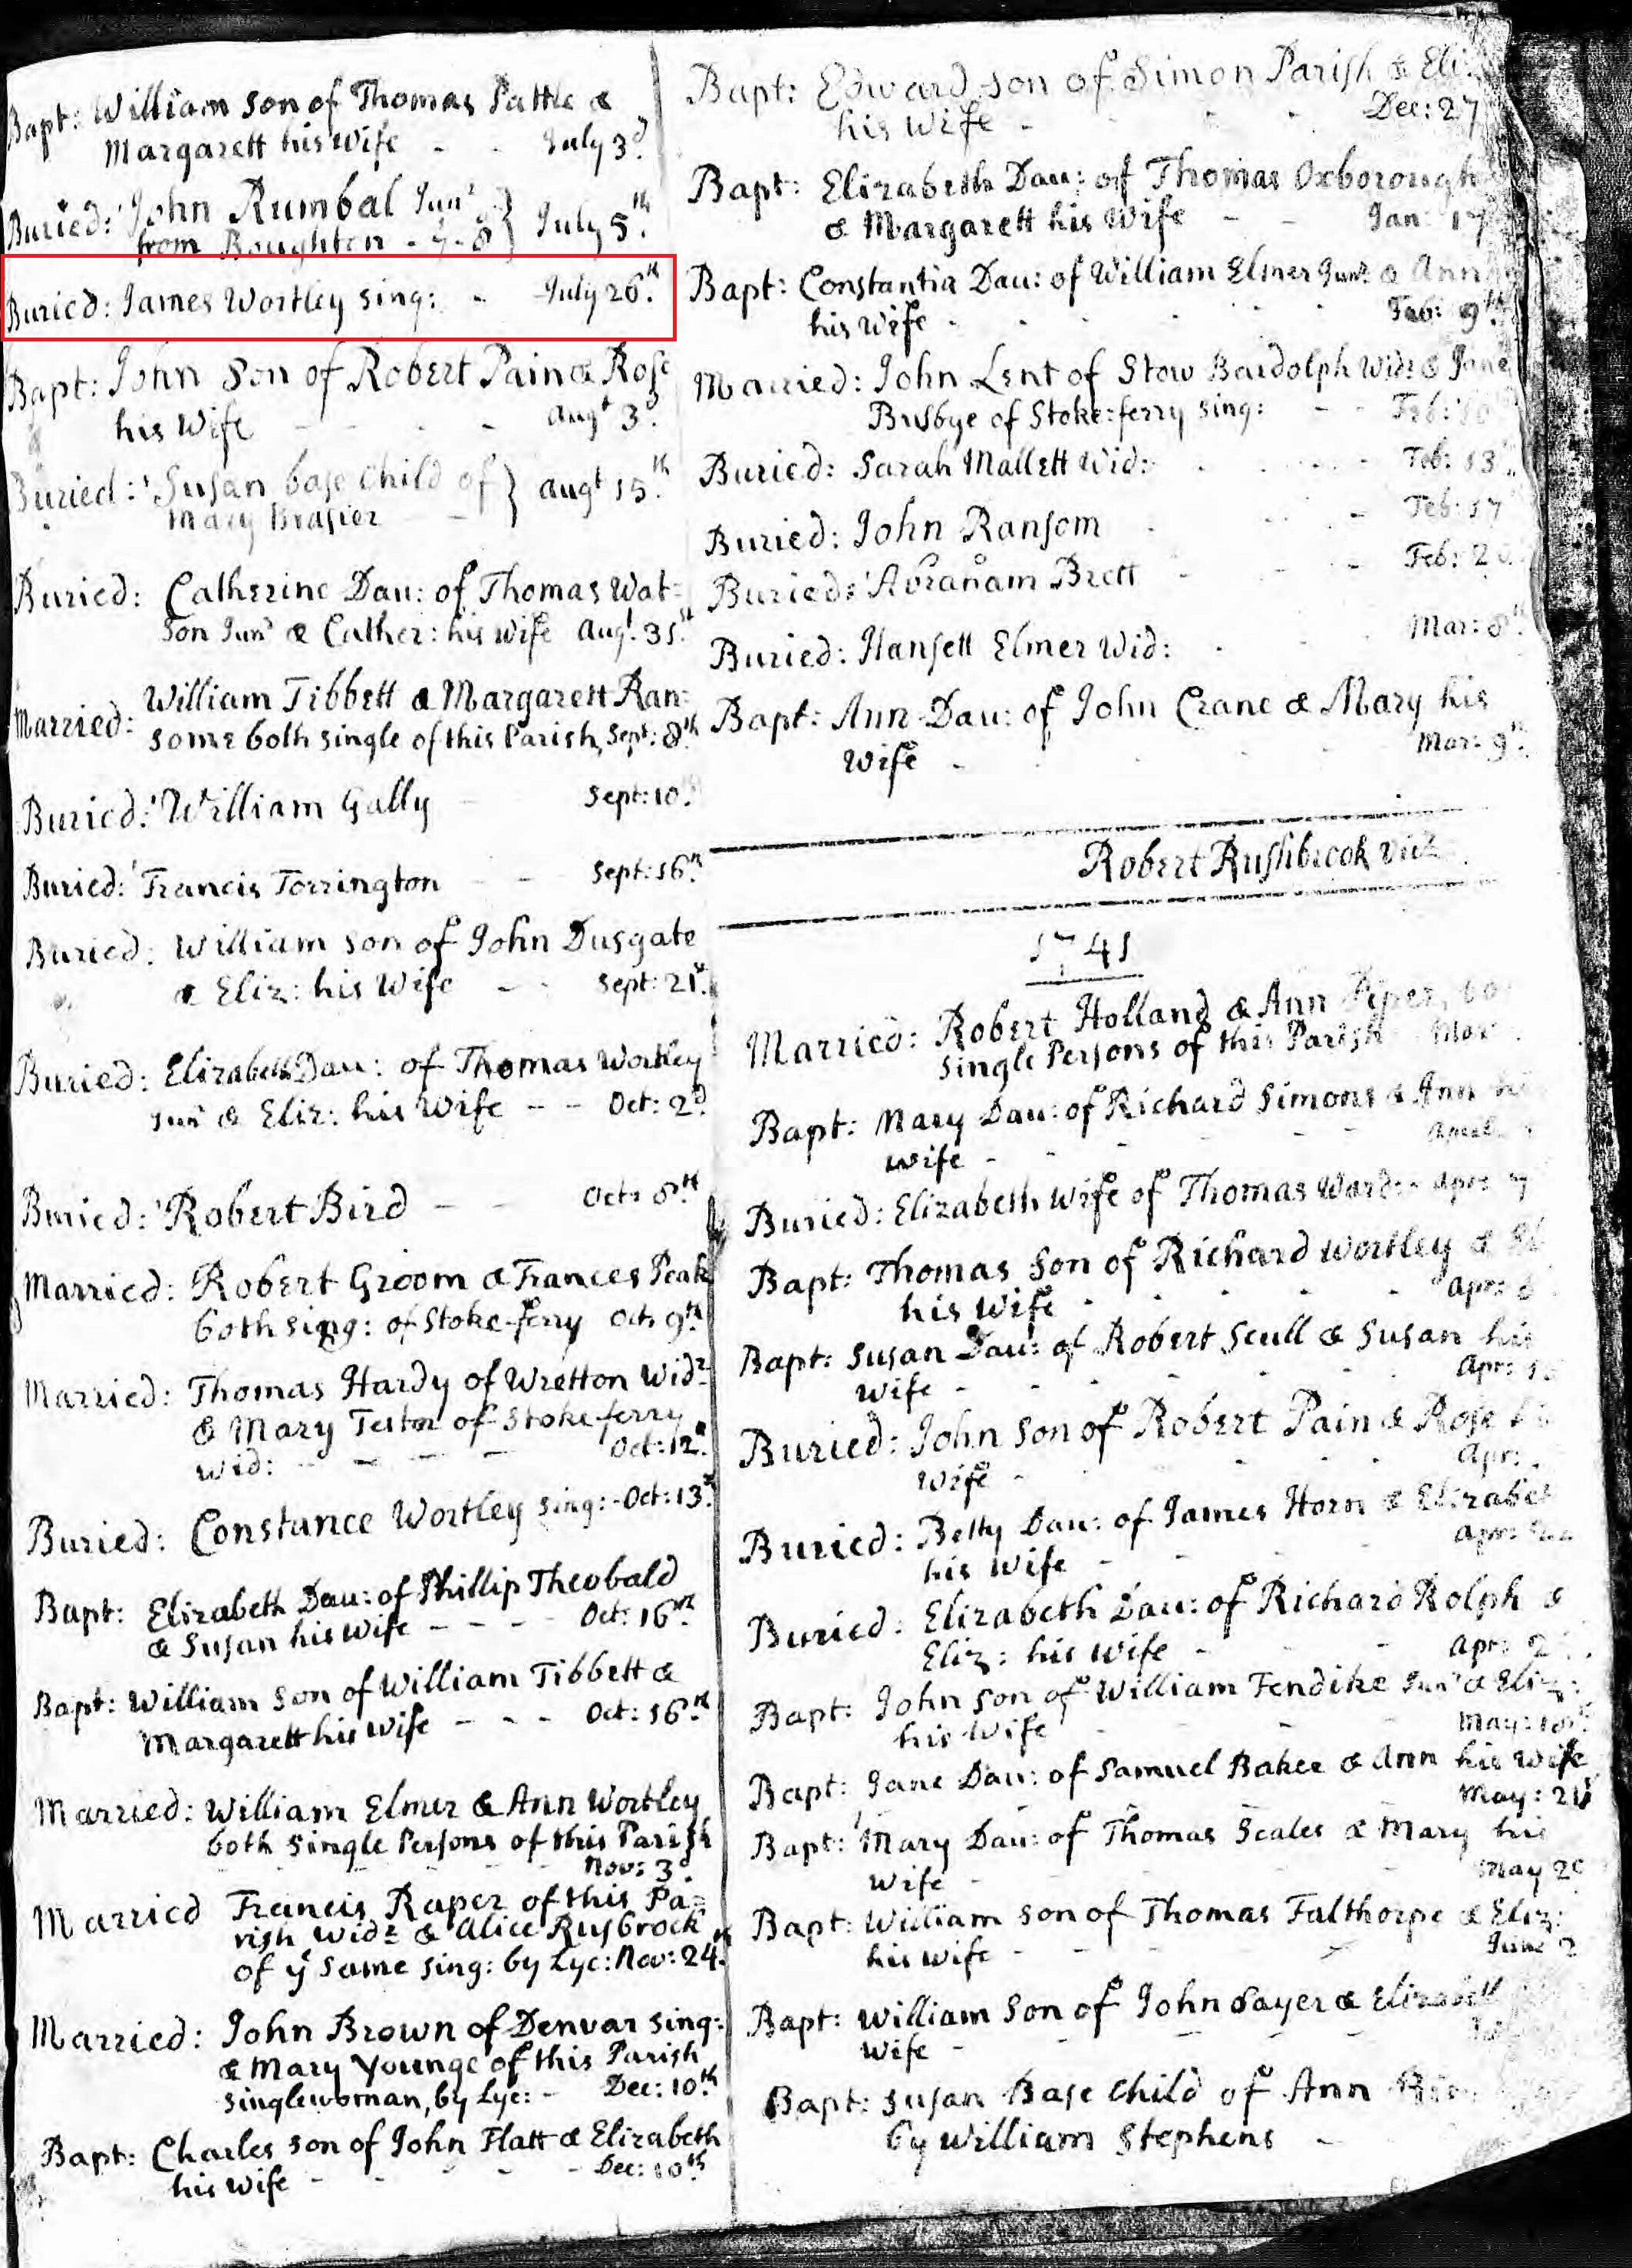 Bapt: William son of Thomas Pattle &
Margarett his wife - - July 3d.
Buried: John Rumbal Junr
from Boughton } July 5th.
Buried: James Wortley sing: - July 26th.
Bapt: John Son of Robert Pain & Rose
his Wife - - - - Augt 3d.
Buried: Susan base Child of
Mary Brasier } Augt 15th.
Buried: Catherine Dau: of Thomas Wat-
son Junr & Cather: his wife Augt. 31st.
Married: William Tibbett & Margarett Ran-
some both single of this Parish, Sept: 8th
Buried: William Gally - Sept: 10th.
Buried: Francis Torrington - - Sept: 16th.
Buried: William son of John Dusgate
& Eliz: his Wife - - Sept: 21st.
Buried: Elizabeth Dau: of Thomas Wortley
Junr & Eliz: his Wife - - Oct: 2d.
Buried: Robert Bird - - Oct: 8th.
Married: Robert Groom & Frances Peak
both sing: of Stoke-ferry Oct: 9th.
Married: Thomas Hardy of Wretton Widr
& Mary of Stoke ferry
Wid: - - - - Oct: 12th.
Buried: Constance Wortley sing: - Oct: 13th.
Bapt: Elizabeth Dau: of Phillip Theobald
& Susan his wife - - - Oct: 16th
Bapt: William Son of William Tibbett &
Margarett his wife - - - Oct: 16th
Married: William Elmer & Ann Wortley
both Single Persons of this Parish
- - - Nov: 3d.
Married Francis Raper of this Pa-
rish Widr & Alice Rusbrock
of ye Same sing: by Lyc: Nov: 24th.
Married: John Brown of Denvar sing:
& Mary Younge of this Parish
singlewoman, by Lyc: - Dec: 10th.
Bapt: Charles son of John Flatt & Elizabeth
his wife - - - - - Dec: 10th
Bapt: Edward son of Simon Parish & Eliz:
his Wife - - - Dec: 27
Bapt: Elizabeth Dau: of Thomas Oxborough
& Margarett his Wife - - Jan: 17
Bapt: Constantia Dau: of William Elmer Junr & Ann
his Wife - - - - Feb: 9th
Married: John Lent of Stow Bardolph Widr & Jane
Busbye of Stoke:ferry sing: - - Feb:
Buried: Sarah Mallett Wid: - - - Feb: 13
Buried: John Ransom - - - Feb: 17
Buried: Abraham Brett - - - Feb: 2
Buried: Hansett Elmer Wid: - - Mar: 8th.
Bapt: Ann Dau: of John Crane & Mary his
Wife - - - - Mar: 9th.
Robert Rushbrook Vicr
1741
Married: Robert Holland & Ann Piper, bo
single Persons of this Parish Mar
Bapt: Mary Dau: of Richard Simons & Ann hi
wife - - - - April
Buried: Elizabeth Wife of Thomas Ward: - Apr: 7
Bapt: Thomas Son of Richard Wortley & El
his Wife - - - - Apr:
Bapt: Susan Dau: of Robert Scull & Susan his
Wife - - - - Apr:
Buried: John Son of Robert Pain & Rose hi
Wife - - - - Apr:
Buried: Betty Dau: of James Horn & Elizabet
his Wife - - - - Apr:
Buried: Elizabeth Dau: of Richard Rolph &
Eliz: his Wife - - - Apr: 2
Bapt: John son of William Fendike Junr & Eliz:
his Wife - - - May:
Bapt: Jane Dau: of Samuel Baker & Ann his Wife
May: 21st
Bapt: Mary Dau: of Thomas Scales & Mary his
Wife - - - - May
Bapt: William son of Thomas Falthorpe & Eliz:
his wife - - - - June 2
Bapt: William Son of John Sayer & Elizabeth
Wife - - - -
Bapt: Susan Base Child of Ann
by William Stephens -